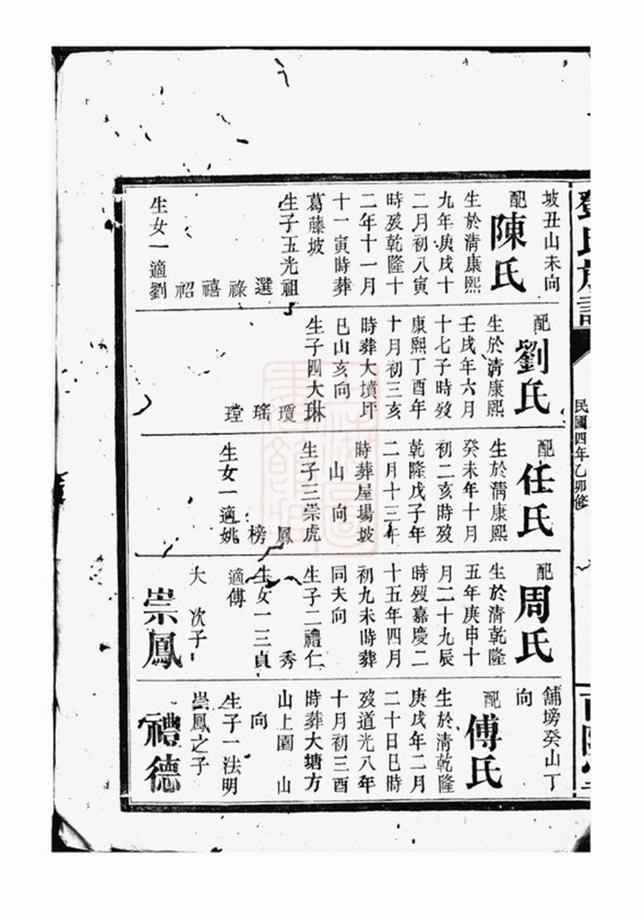 氏族
民國四年乙卯修
坡丑山未向
配陳氏
生於清康熙
九年庚戌十
二月初八寅
時歿乾隆十
二年十一月
十一寅時葬
葛藤坡
生子五光祖
選
祿
禧
祒
生女一適劉
配劉氏
生於清康熙
壬戌年六月
十七子時歿
康熙丁酉年
十月初三亥
時葬大墳坪
巳山亥向
生子四大琳
瓊
瑤
瑝
配任氏
生於清康熙
癸未年十月
初二亥時歿
乾隆戊子年
二月十三年
時葬屋場坡
山向
生子三崇虎
鳳
榜
生女一適姚
配周氏
生於清乾隆
五年庚申十
月二十九辰
時歿嘉慶二
十五年四月
初九未時葬
同夫向
生子二禮仁
秀
生女一三貞
適傅
大 次子
崇鳳
舖塝癸山丁
向
配傅氏
生於清乾隆
庚戌年二月
二十日巳時
歿道光八年
十月初三酉
時葬大塘方
山上園 山
向
生子一法明
崇鳳之子
禮德